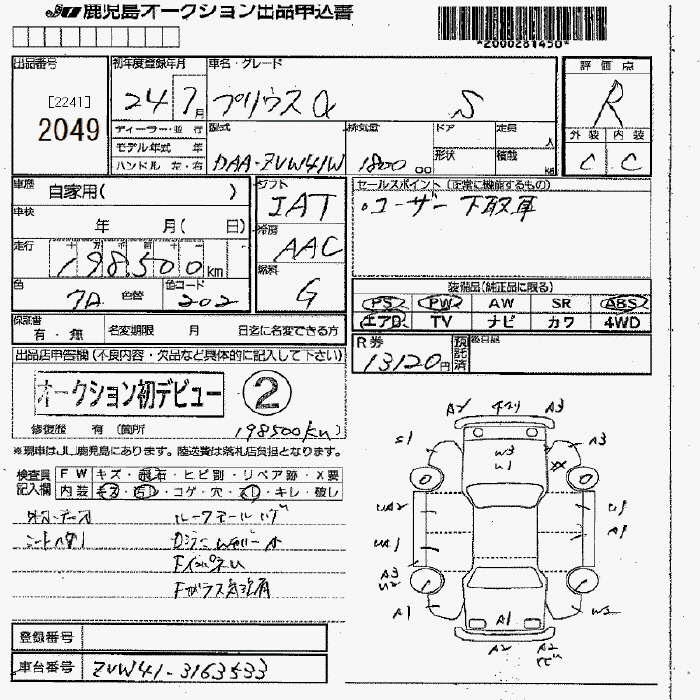 JU 鹿児島オークション出品申込書
*2000281450*
出品番号
[2241]
2049
初年度登録年月
24 7月
車名・グレード
プリウスα S
評価点
R
外装 内装
C C
ディーラー・並行
モデル年式 年
ハンドル 左・右
型式
DAA-ZVW41W
排気量
1800 cc
ドア
形状
定員
人
積載
kg
車歴
自家用( )
車検
年 月( 日)
走行
十 万 千 百 十
198,500km
色 色替 色コード
202
シフト
IAT
冷房
AAC
燃料
G
セールスポイント (正常に機能するもの)
・ユーザー下取車
装備品(純正品に限る)
PS PW AW SR ABS
エアB TV ナビ カワ 4WD
保証書
有・無
名変期限 月 日迄に名変できる方
R券
13120円
預託済
後日品
出品店申告欄(不良内容・欠品など具体的に記入して下さい)
オークション初デビュー
2
修復歴 有 (箇所
198500km)
※現車はJU鹿児島にあります。陸送費は落札店負担となります。
検査員記入欄
FW キズ・飛石・ヒビ割・リペア跡・X要
内装 キズ・汚レ・コゲ・穴・スレ・キレ・破レ
ルーフモール
Fインパネ
Fガラス
A2 A3
S1 A3
W3
U1
XX
UA2 U1
UA1 A1
A3
U2
A1 A1 W2
A2 A2
登録番号
車台番号
ZVW41-3163533